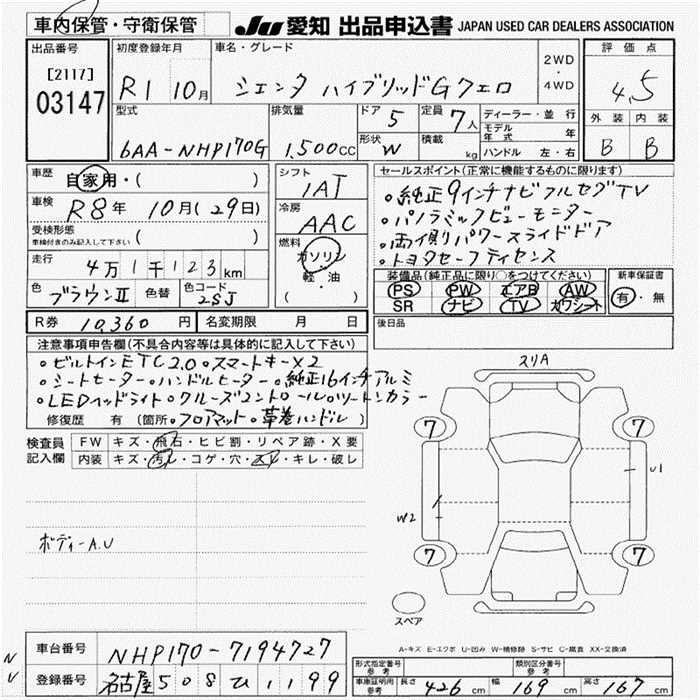 車内保管・守衛保管
JU 愛知 出品申込書 JAPAN USED CAR DEALERS ASSOCIATION
出品番号
[2117]
03147
初度登録年月
R1 10月
車名・グレード
シエンタ ハイブリッドGクエロ
2WD
・
4WD
評価点
4.5
外装 内装
B B
型式
6AA-NHP170G
排気量
1,500cc
ドア 5
形状 W
定員 7人
積載 kg
ディーラー・並行
モデル年式 年
ハンドル 左・右
車歴 自家用・( )
車検 R8年 10月(29日)
受検形態
車検付きのみ記入して下さい ( )
走行 4万1千123km
色 ブラウンⅡ 色替 色コード 2SJ
シフト
1AT
冷房
AAC
燃料
ガソリン
軽・油
( )
セールスポイント(正常に機能するものに限ります)
・純正9インチナビフルセグTV
・パノラミックビューモニター
・両側パワースライドドア
・トヨタセーフティセンス
装備品(純正品に限り○をつけてください)
PS PW エアB AW
SR ナビ TV カワシート
新車保証書
有・無
R券 10,360円 名変期限 月 日
後日品
注意事項申告欄(不具合内容等は具体的に記入して下さい)
・ビルトインETC2.0・スマートキーX2
・シートヒーター・ハンドルヒーター・純正16インチアルミ
・LEDヘッドライト・クルーズコントロール・ツートンカラー
修復歴 有 (箇所・フロアマット・革巻ハンドル)
検査員記入欄
FW キズ・飛石・ヒビ割・リペア跡・X要
内装 キズ・汚レ・コゲ・穴・スレ・キレ・破レ
ボディーA.U
スリA
7 7
U1
W2
7 7
スペア
A-キズ E-エクボ U-凹み W-補修跡 S-サビ C-腐食 XX-交換済
NV
車台番号 NHP170-7194727
登録番号 名古屋508ひ1199
形式指定番号
参考
類別区分番号
参考
車庫証明用
参考
長さ 426cm 幅 169cm 高さ 167cm